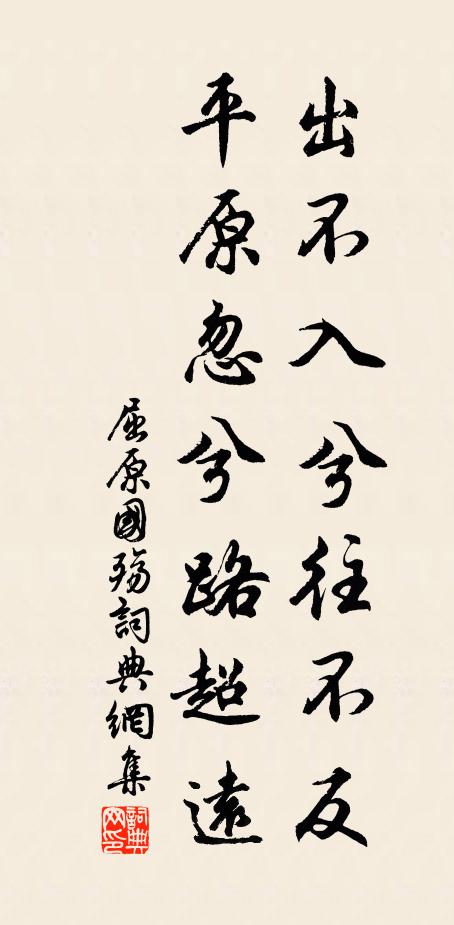 出不入兮往不反
平原忽兮路超遠
屈原國殤詞典網集
詞典
网印